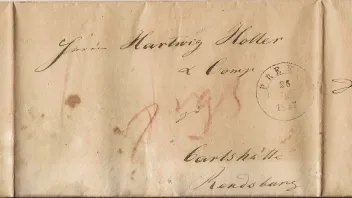 Herrn Hartwig Holler
& Comp
PREE
25
Carlshütte
Rendsburg